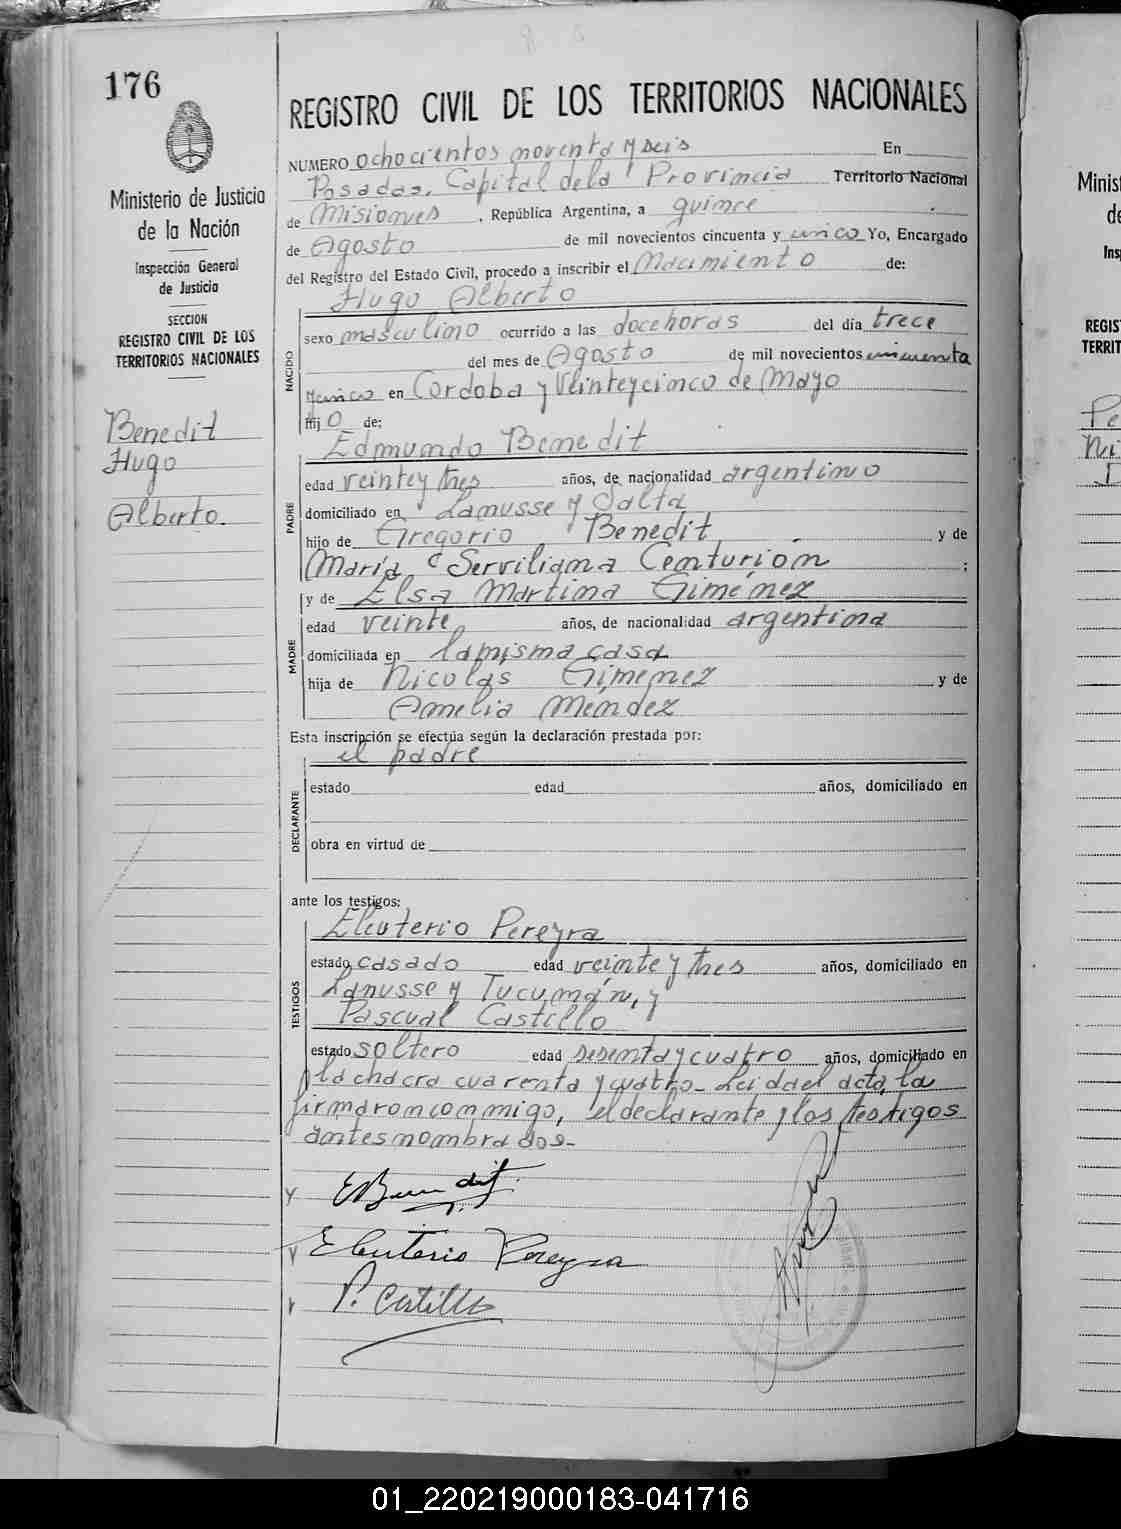 176
Ministerio de Justicia
de la Nación
Inspección General
de Justicia
SECCION
REGISTRO CIVIL DE LOS
TERRITORIOS NACIONALES
Benedit
Hugo
Alberto.
REGISTRO CIVIL DE LOS TERRITORIOS NACIONALES
NUMERO ochocientos noventa y seis En
Posadas, Capital de la Provincia Territorio Nacional
de Misiones, República Argentina, a quince
de Agosto de mil novecientos cincuenta y cinco Yo, Encargado
del Registro del Estado Civil, procedo a inscribir el Nacimiento de:
Hugo Alberto
NACIDO
sexo masculino ocurrido a las doce horas del día trece
del mes de Agosto de mil novecientos cincuenta
y cinco en Cordoba y Veinteycinco de Mayo
Hijo de:
Edmundo Benedit
PADRE
edad veinte y tres años, de nacionalidad argentino
domiciliado en Lanusse y Salta
hijo de Gregorio Benedit y de
María Serviliana Centurión ;
y de Elsa Martina Giménez
MADRE
edad veinte años, de nacionalidad argentina
domiciliada en la misma casa
hija de Nicolás Gimenez y de
Amelia Méndez
Esta inscripción se efectúa según la declaración prestada por:
el padre
DECLARANTE
estado edad años, domiciliado en
obra en virtud de
ante los testigos:
Eleuterio Pereyra
TESTIGOS
estado casado edad veinte y tres años, domiciliado en
Lanusse y Tucumán, y
Pascual Castillo
estado soltero edad sesenta y cuatro años, domiciliado en
la chacra cuarenta y cuatro_ Leida el acta, la
firmaron conmigo, el declarante y los testigos
antes nombrados_
EBenedit.
Eleuterio Pereyra
P. Castillo
Minis
de
Ins
REGIS
TERRIT
Pe
Ni
01_220219000183-041716